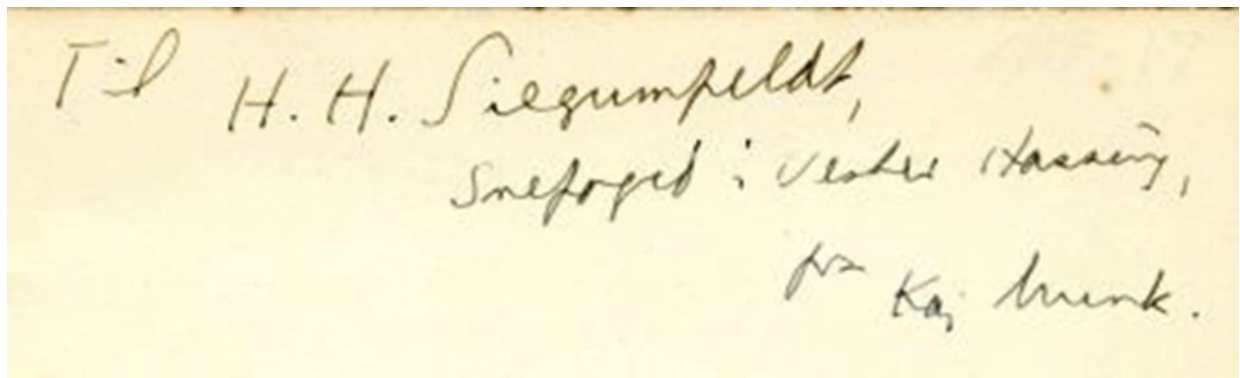 Til H. H. Siegumfeldt,
Snefoged i Vester Hassing,
fra Kaj Munk.